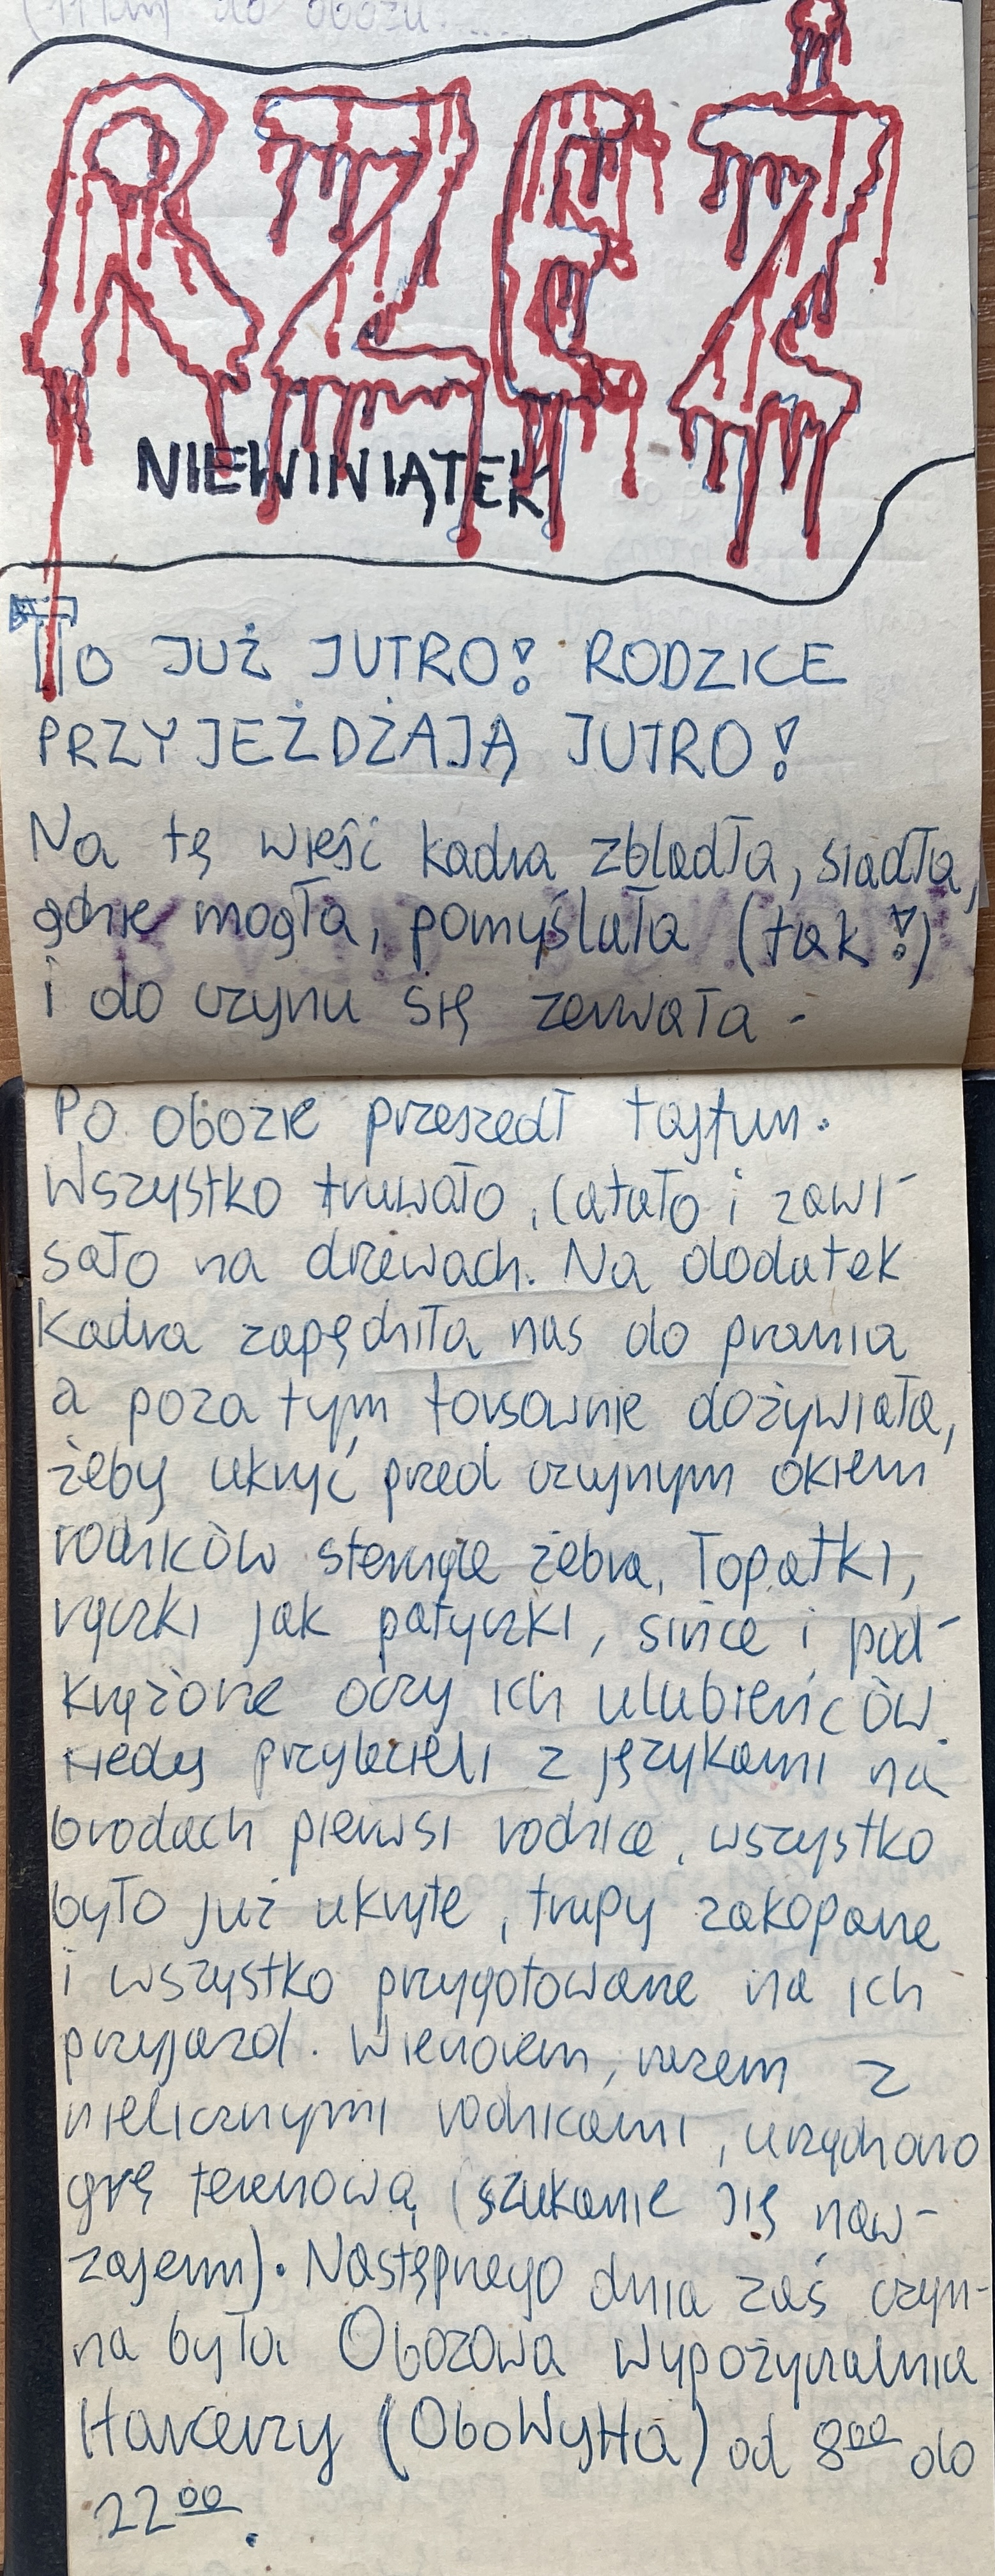 (11 km) do obozu....
RZEZ
NIEWINIĄTEK
TO JUŻ JUTRO! RODZICE
PRZYJEŻDŻAJĄ JUTRO!
Na tę wieść kadra zbladła, siadła,
gdzie mogła, pomyślała (tak!)
i do czynu się zerwała -
Po obozie przeszedł tajfun.
Wszystko fruwało, latało i zawi-
sało na drzewach. Na dodatek
Kadra zapędziła nas do prania
a poza tym forsownie dożywiała,
żeby ukryć przed czujnym okiem
rodziców sterczące żebra, łopatki,
rączki jak patyczki, sińce i pod-
krążone oczy ich ulubieńców.
Kiedy przylecieli z językami na
brodach pierwsi rodzice, wszystko
było już ukryte, trupy zakopane
i wszystko przygotowane na ich
przyjazd. Wieczorem, razem z
nielicznymi rodzicami, urządzono
grę terenową (szukanie się naw-
zajem). Następnego dnia zaś czyn-
na była Obozowa Wypożyczalnia
Harcerzy (OboWyHa) od 8⁰⁰ do
22⁰⁰.